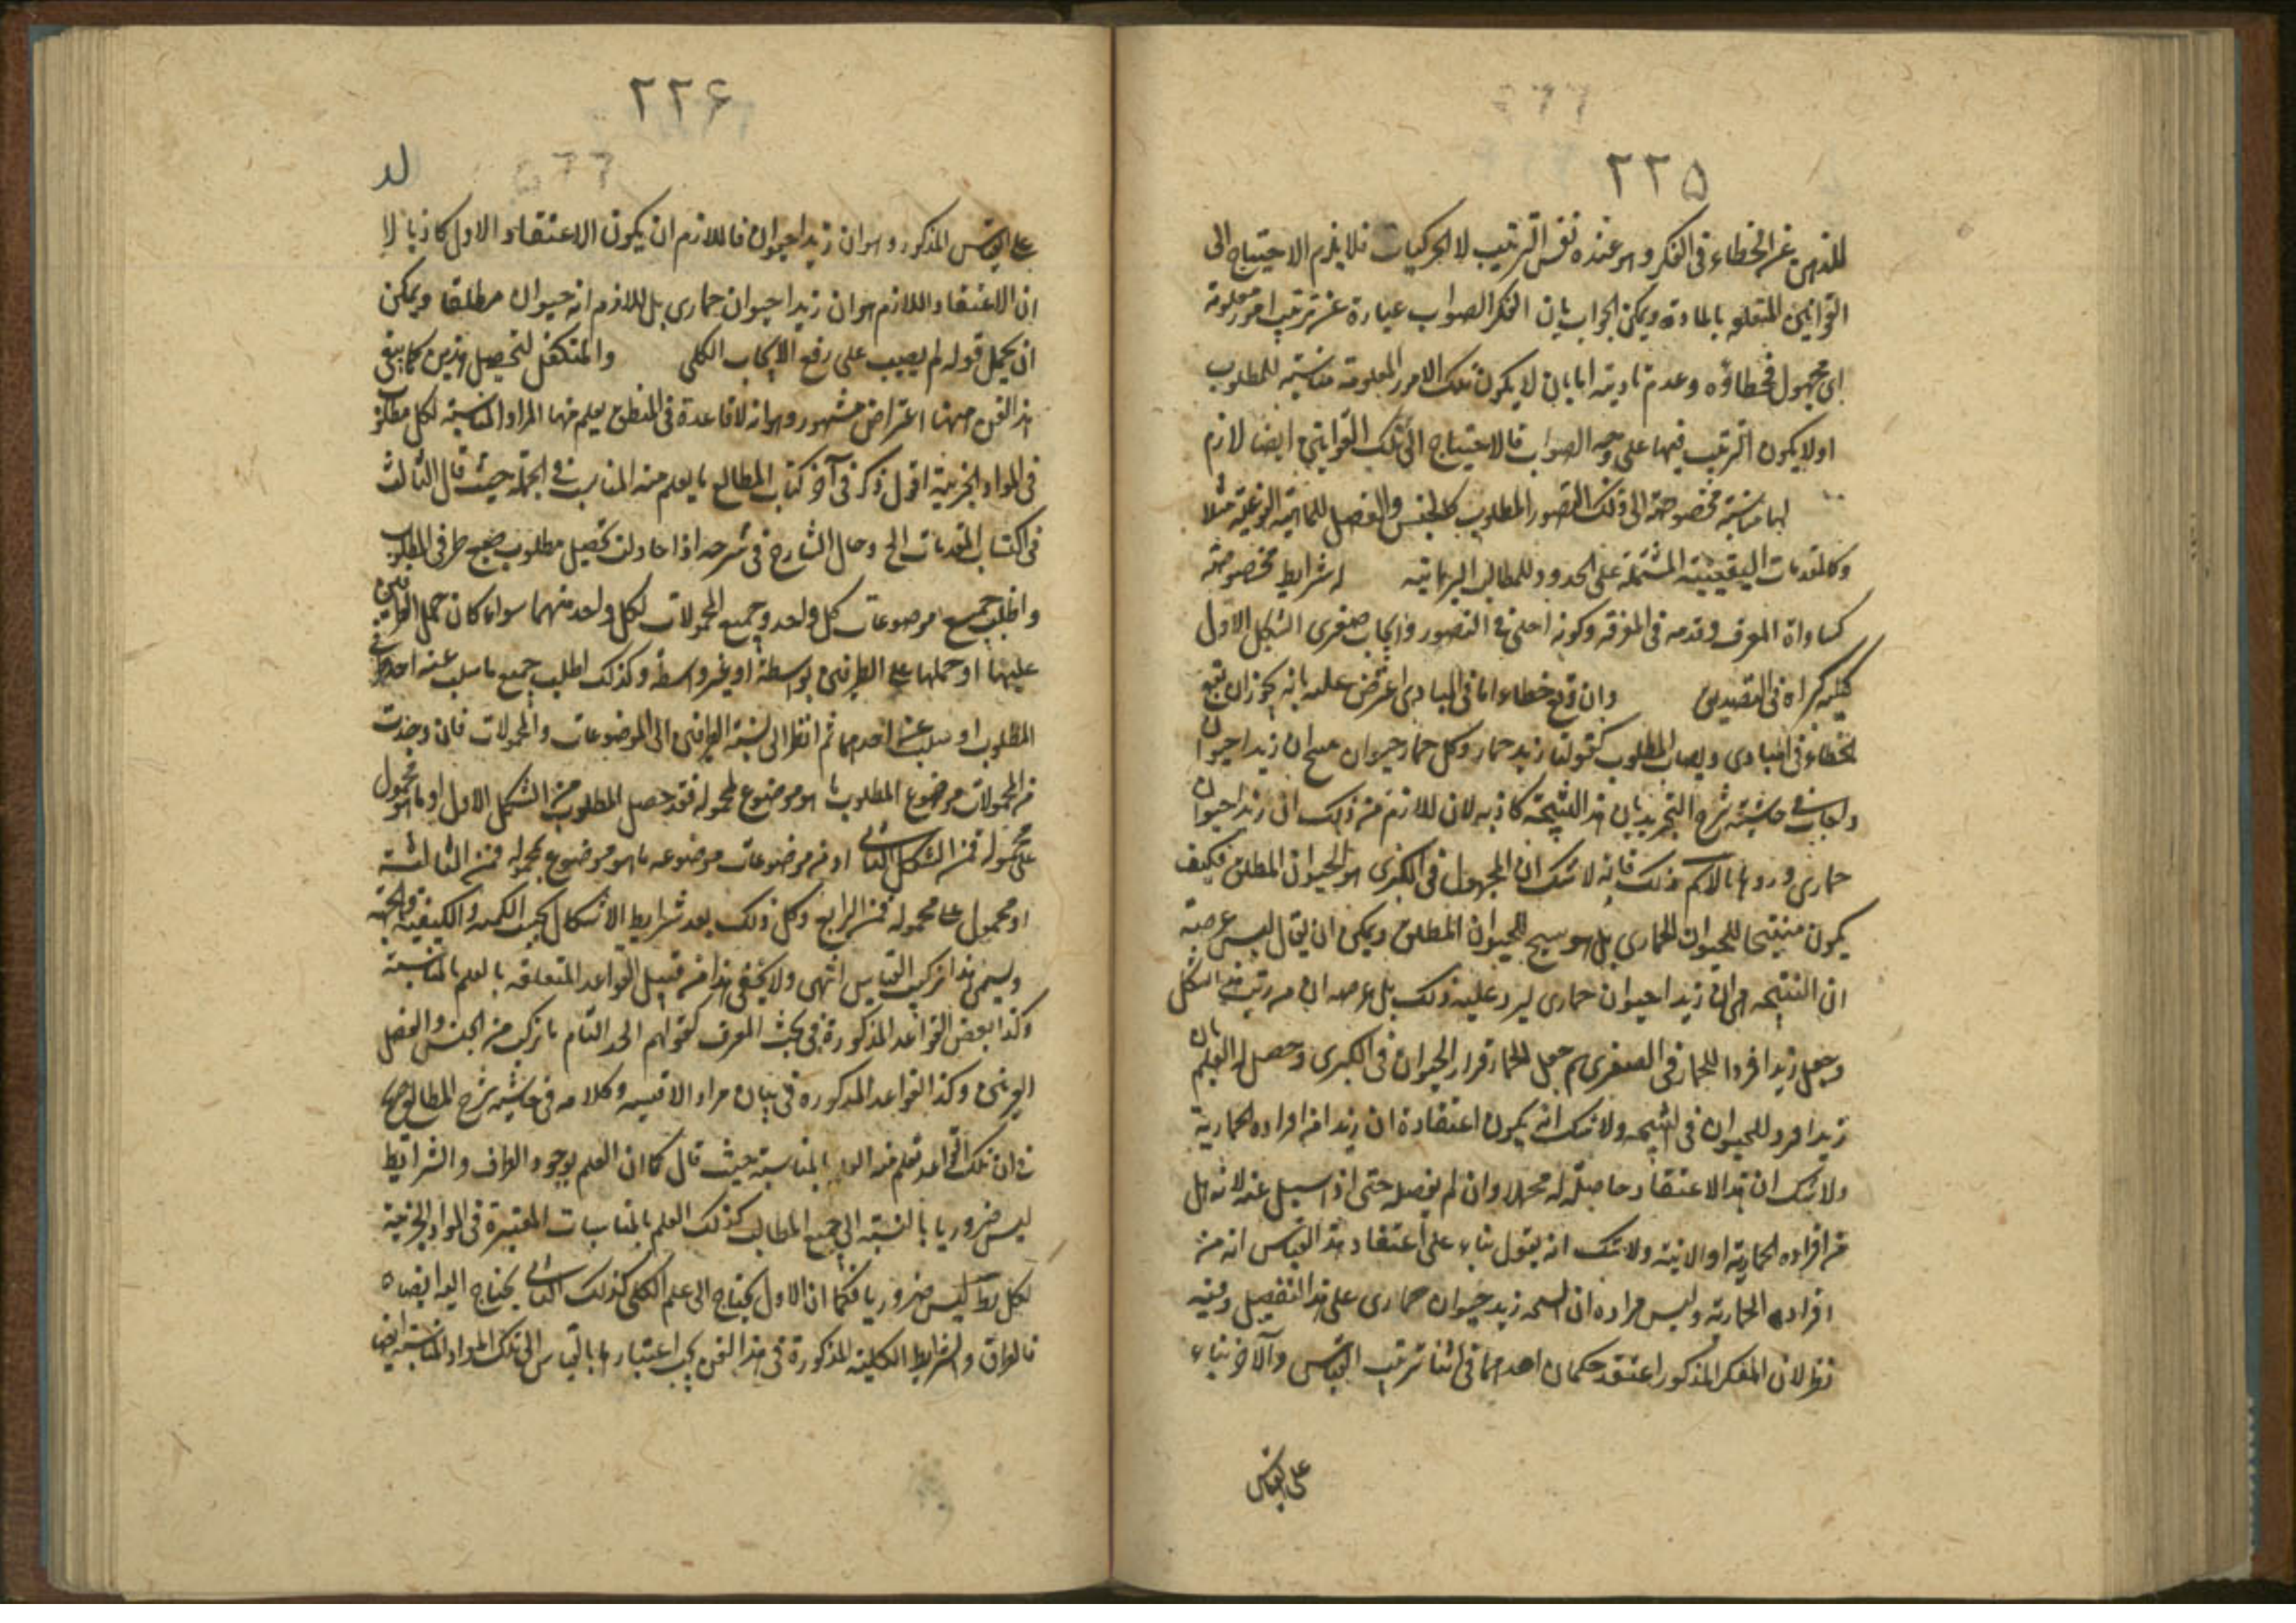 ٢٢٥
للذهن عن الخطاء فى الفكر وهو عنده نفس الترتيب لا الحركيات فلا يلزم الاحتياج الى
القوانين المتعلقه بالماده ويمكن الجواب بان الفكر الصواب عبارة عن ترتيب امور معلومة
الى مجهول فخطاؤه وعدم تاديته اما بان لا يكون تلك الامور المعلومة مناسبة للمطلوب
اولا يكون الترتيب فيها على وجه الصواب فالاحتياج الى تلك القوانين ايضا لازم
لها مناسبة مخصوصة الى ذلك التصور المطلوب كالجنس والفصل للماهية النوعية مثلا
وكالمقدمات اليقينية المشتملة على الحدود للمطالب البرهانيه له شرايط مخصوصة
كمساواة المعرف وتقدمه فى المعرفه وكونه اجلى فى التصور وايجاب صغرى الشكل الاول
كليه كبراه فى التصديق وان وقع خطاء اما فى المبادى اعترض عليه بانه يجوز ان يقع
الخطاء فى المبادى ويصاب المطلوب كقولنا زيد حمار وكل حمار حيوان ينتج ان زيدا حيوان
واجاب فى حاشية شرح التجريد بان هذا النتيجة كاذبه لان اللازم من ذلك ان زيدا حيوان
حمارى ورد بانا لانم ذلك فانه لا شك ان المجهول فى الكبرى هو الحيوان المطلق فكيف
يكون منتجا للحيوان الحمارى بل هو ينتج للحيوان المطلق ويمكن ان يقال ليس غرضه
ان النتيجه هى ان زيدا حيوان حمارى ليرد عليه ذلك بل غرضه ان من رتب هذا الشكل
وجعل زيدا فردا للحمار فى الصغرى ثم جعل الحمار فردا للحيوان فى الكبرى وحصل له العلم بان
زيدا فرد للحيوان فى النتيجه ولا شك انه يكون اعتقاده ان زيدا من افراده الحمارية
ولا شك ان هذا الاعتقاد حاصلة له مجملا وان لم يفصله حتى اذا سئل عنه لانه هل
من افراده الحمارية او الانسية ولا شك انه يقول بناء على اعتقاد هذا القياس انه من
افراده الحمارية وليس مراده ان النتيجه زيد حيوان حمارى على هذا التفصيل وفيه
نظر لان المفكر المذكور اعتقد حكمان احدهما فى اثنا ترتيب القياس والآخر بناء
على القياس
٢٢۶
على القياس المذكور وهو ان زيدا حيوان فاللازم ان يكون الاعتقاد الاول كاذبا لا
ان الاعتقاد اللازم هو ان زيدا حيوان حمارى بل اللازم انه حيوان مطلقا ويمكن
ان يحمل قوله لم يصب على رفع الايجاب الكلى والمتكفل لتحصيل هذين كما ينبغى
هذا الفن ههنا اعتراض مشهور وهو انه لا قاعدة فى المنطق يعلم منها المواد المناسبة لكل مطلوب
فى المواد الجزئية اقول ذكر فى آخر كتاب المطالع ما يعلم منه المناسب فى الجملة حيث قال الثالث
فى اكتساب المقدمات الخ وقال الشارح فى شرحه اذا حاولت تحصيل مطلوب ضع طرفى المطلوب
واطلب جميع موضوعات كل واحد وجميع المحمولات لكل واحد منهما سواء كان حمل الطرفين
عليها او حملها على الطرفين بواسطة او بغير واسطة وكذلك اطلب جميع ما سلب عنه احد طرفى
المطلوب او سلب عن احدهما ثم انظر الى نسبة الطرفين الى الموضوعات والمحمولات فان وجدت
من المحمولات موضوع المطلوب ما هو موضوع لمحموله فقد حصل المطلوب من الشكل الاول او ما هو محمول
على محموله فمن الشكل الثانى او من موضوعات موضوعه ما هو موضوع لمحموله فمن الثالث
او محمول على محموله فمن الرابع وكل ذلك بعد شرايط الاشكال بحسب الكميه والكيفيه والجهة
ويسمى هذا تركيب القياس انتهى ولا يخفى هذا من قبيل القواعد المتعلقه بالعلم بالمناسبة
وكذا بعض القواعد المذكورة فى بحث المعرف كقولهم الحد التام ما تركب من الجنس والفصل
القريبين وكذا القواعد المذكوره فى بيان مواد الاقيسه وكلامه فى حاشية شرح المطالع
فى ان تلك القواعد تعلم منه العلم بالمناسبة حيث قال كما ان العلم بوجود الطرق والشرائط
ليس ضروريا بالنسبة الى جميع المطالب كذلك العلم بالمناسبات المعتبرة فى المواد الجزئية
لكل ليس ضروريا فكما ان الاول يحتاج الى علم الكلى كذلك الثانى يحتاج اليه ايضا
فالطرق والشرايط الكلية المذكورة فى هذا الفن يجب اعتبارها بالقياس الى تلك المواد المناسبة ايضا